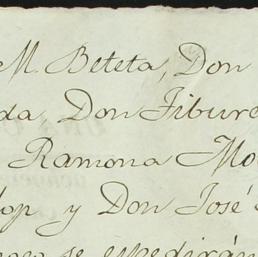 M. Beteta, Don
da, Don Tiburc
Ramona Mo
lop y Don José
se espedirán